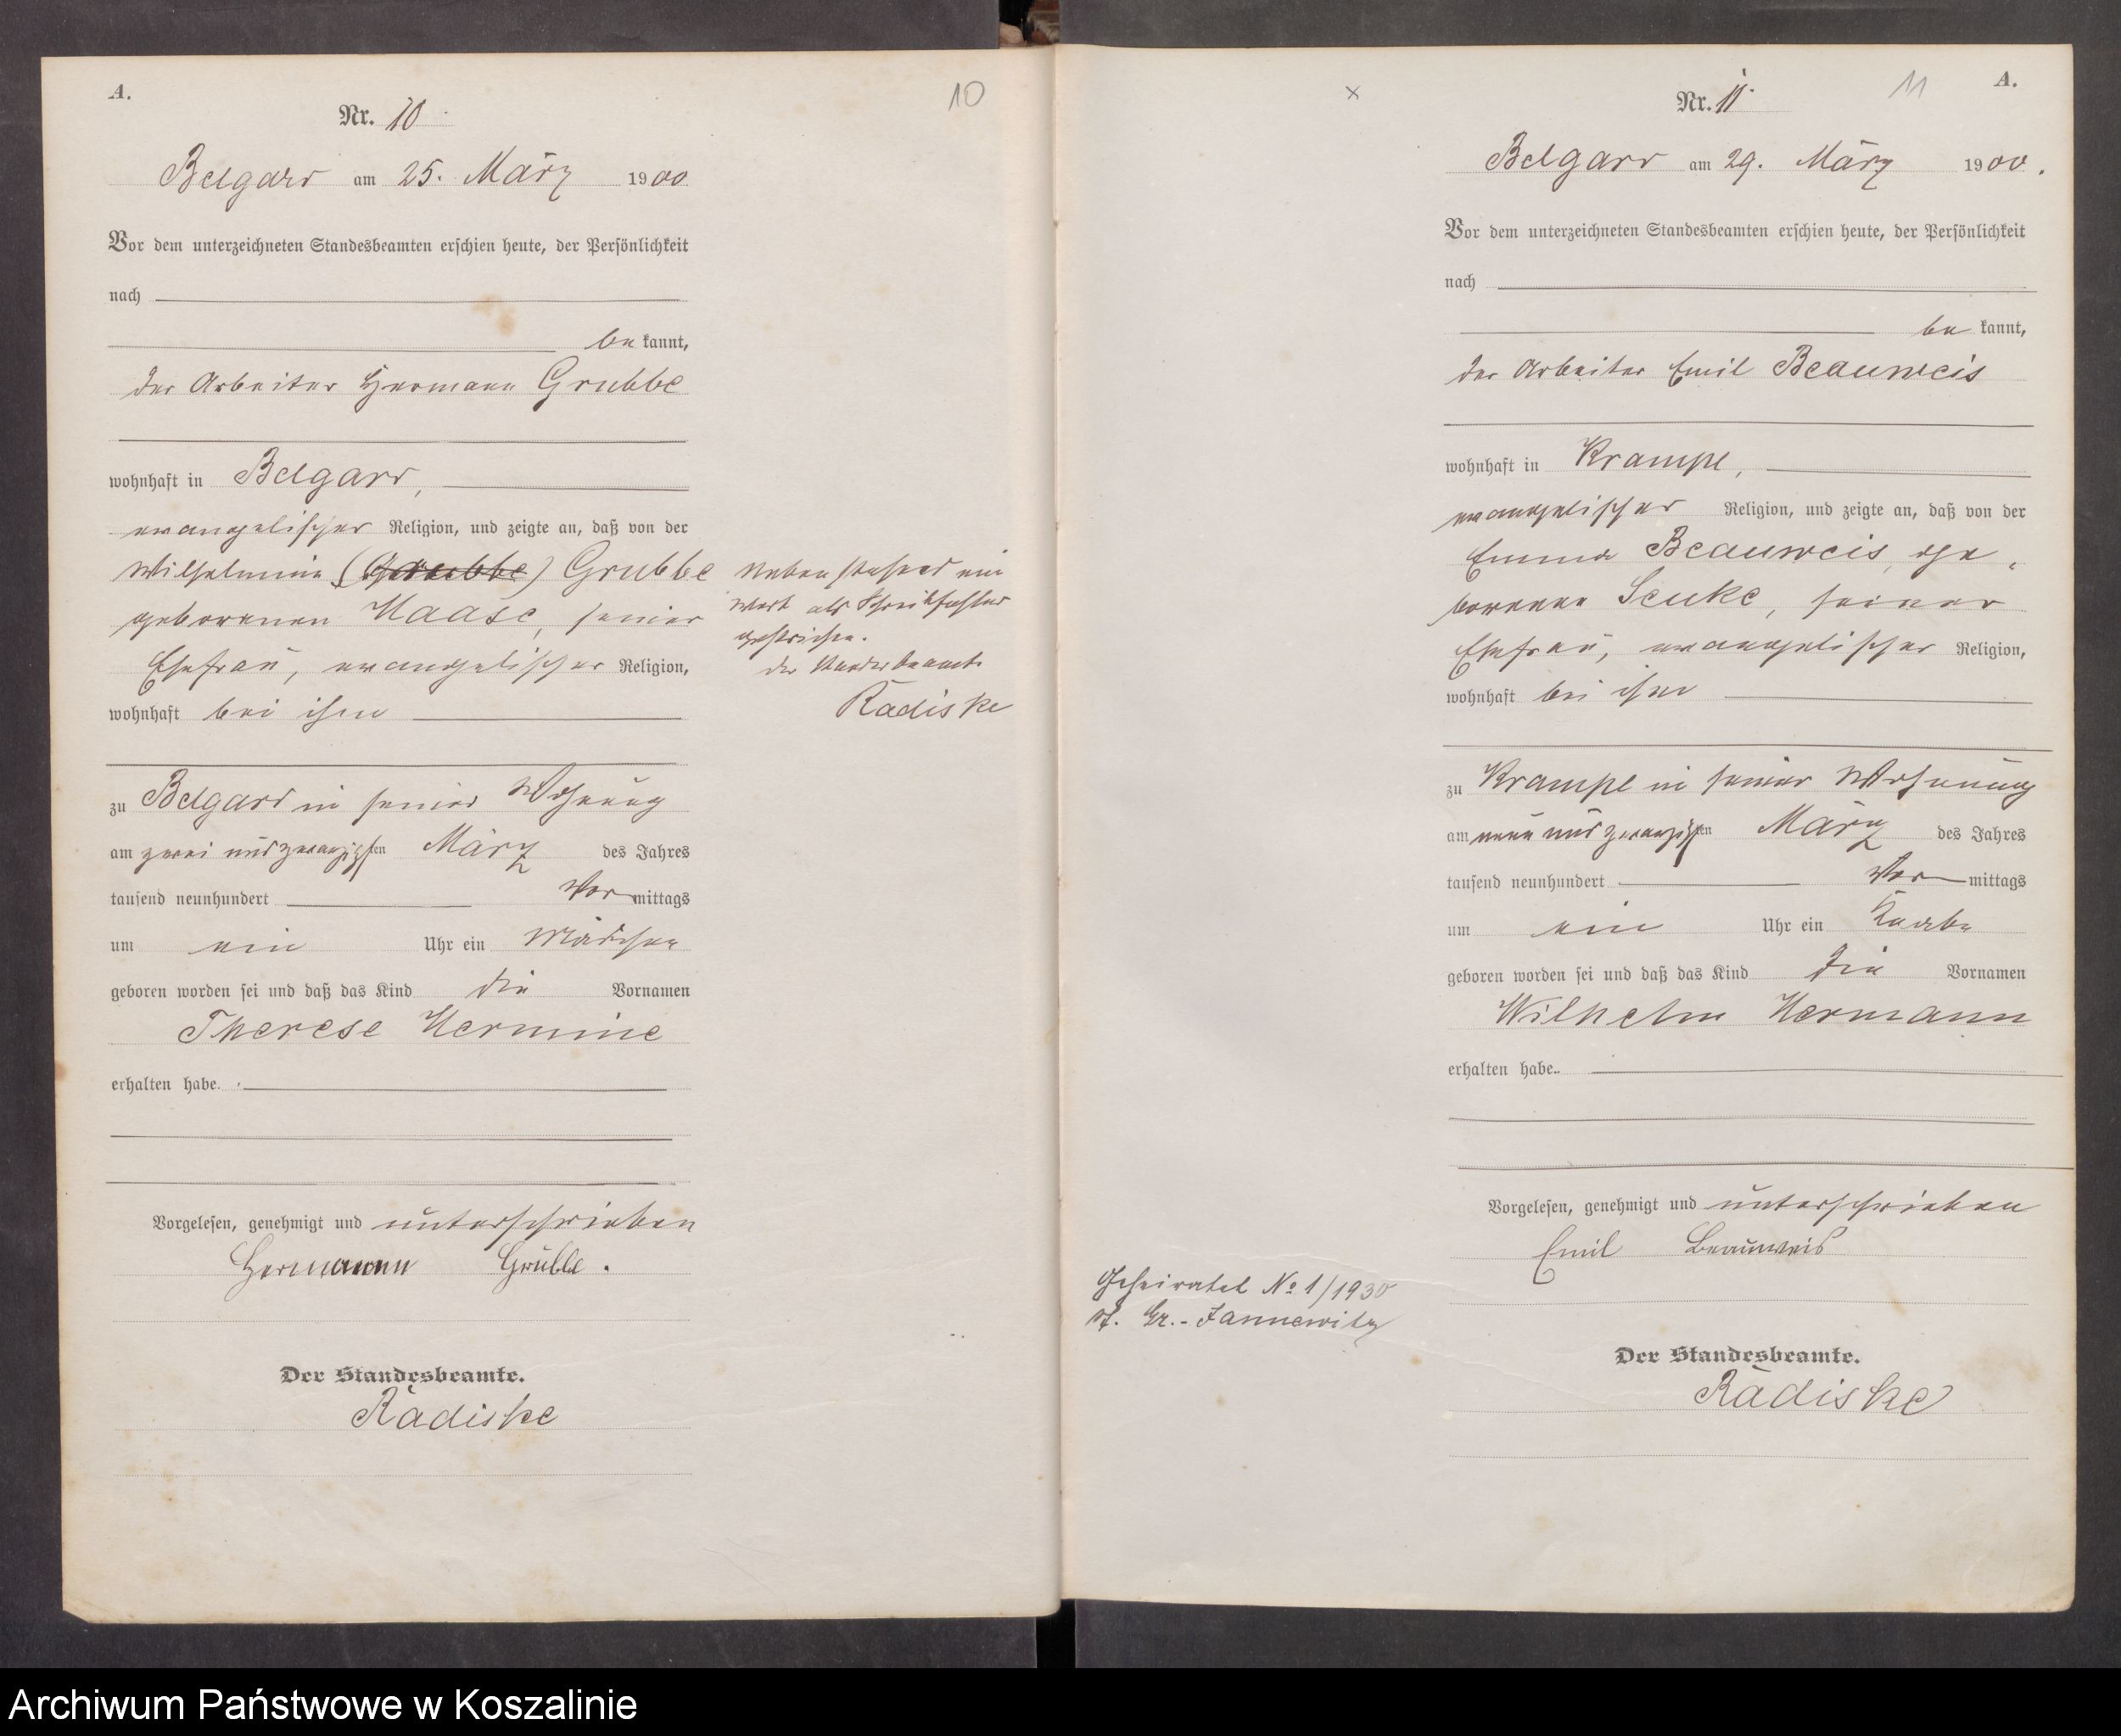 A.
10
Nr. 10
Belgard am 25. März 1900
Vor dem unterzeichneten Standesbeamten erschien heute, der Persönlichkeit
nach
be kannt,
der Arbeiter Hermann Grubbe
wohnhaft in Belgard,
evangelischer Religion, und zeigte an, daß von der
Wilhelmine (Grubbe) Grubbe
geborenen Haase, seiner
Ehefrau, evangelischer Religion,
wohnhaft bei ihm
zu Belgard in seiner Wohnung
am zwei und zwanzigsten März des Jahres
tausend neunhundert Vormittags
um ein Uhr ein Mädchen
geboren worden sei und daß das Kind die Vornamen
Therese Hermine
erhalten habe.
Vorgelesen, genehmigt und unterschrieben
Hermann Grubbe.
Der Standesbeamte.
Radiske
Nebenstehend ein
Wort als Schreibfehler
gestrichen.
Der Standesbeamte
Radiske
x
11
A.
Nr. 11.
Belgard am 29. März 1900.
Vor dem unterzeichneten Standesbeamten erschien heute, der Persönlichkeit
nach
be kannt,
der Arbeiter Emil Beauweis
wohnhaft in Krampe,
evangelischer Religion, und zeigte an, daß von der
Emma Beauweis, ge
borenen Seuke, seiner
Ehefrau, evangelischer Religion,
wohnhaft bei ihm
zu Krampe in seiner Wohnung
am neun und zwanzigsten März des Jahres
tausend neunhundert Vormittags
um ein Uhr ein Knabe
geboren worden sei und daß das Kind die Vornamen
Wilhelm Hermann
erhalten habe.
Vorgelesen, genehmigt und unterschrieben
Emil Beauweis
Der Standesbeamte.
Radiske
Geheiratet No 1/1930
Gr.-Jannewitz
Archiwum Państwowe w Koszalinie